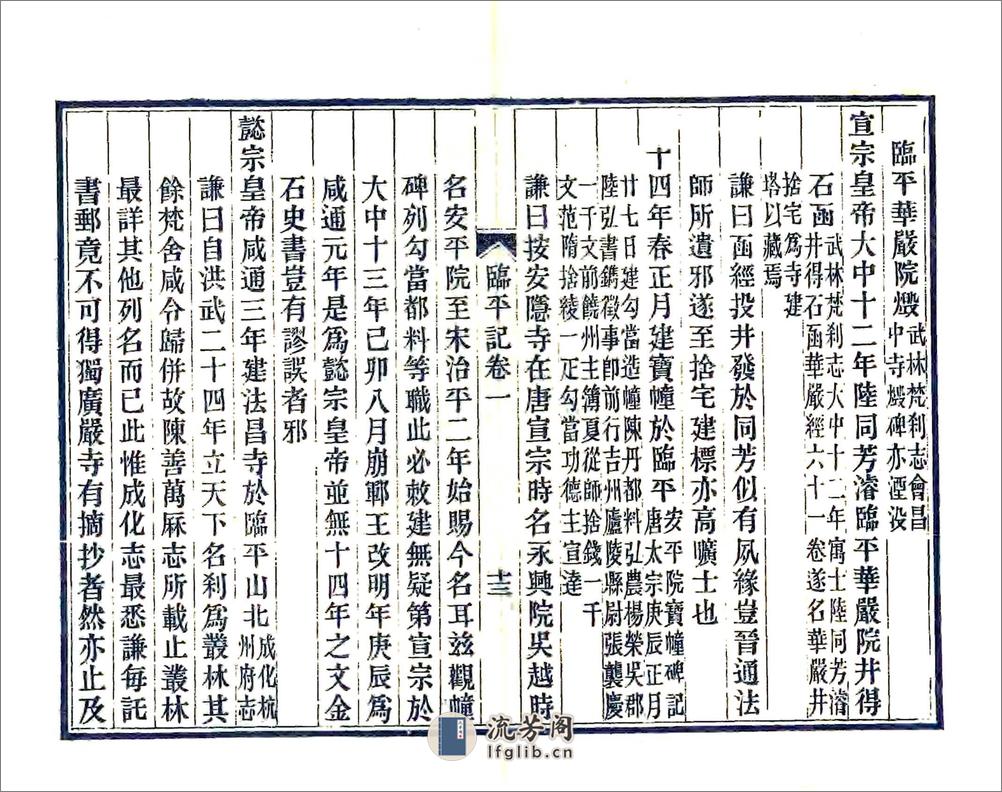 臨平華嚴院燬武林梵刹志會昌
中寺燬碑亦湮沒
宣宗皇帝大中十二年陸同芳濬臨平華嚴院井得
石函武林梵刹志大中十二年寓士陸同芳濬
井得石函華嚴經六十一卷遂名華嚴井
捨宅爲寺建
塔以藏焉
謙曰函經投井發於同芳似有夙緣豈晉通法
師所遺邪遂至捨宅建標亦高曠士也
十四年春正月建寶幢於臨平安平院寶幢碑記
唐太宗庚辰正月
廿七日建勾當造幢陳丹都料弘農楊榮吳郡
陸弘書鐫徵事郎前行吉州廬陵縣尉張龑慶
一千文前饒州主簿夏從師捨錢一千
文范隋捨綾一疋勾當功德主宣達
謙曰按安隱寺在唐宣宗時名永興院吳越時
臨平記卷一
十三
名安平院至宋治平二年始賜今名耳茲觀幢
碑列勾當都料等職此必敕建無疑第宣宗於
大中十三年己卯八月崩鄆王改明年庚辰爲
咸通元年是爲懿宗皇帝並無十四年之文金
石史書豈有謬誤者邪
懿宗皇帝咸通三年建法昌寺於臨平山北成化杭
州府志
謙曰自洪武二十四年立天下名刹爲叢林其
餘梵舍咸令歸併故陳善萬厤志所載止叢林
最詳其他列名而已此惟成化志最悉謙每託
書郵竟不可得獨廣嚴寺有摘抄者然亦止及
流芳阁
lfglib.cn